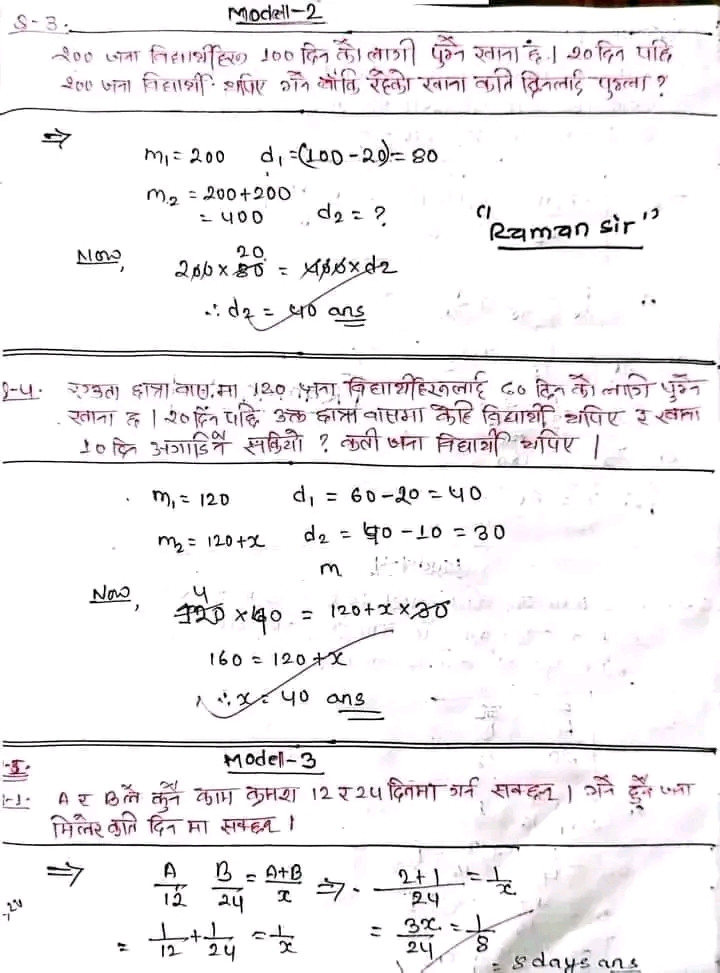 Modell-2
S-3.
२०० जना विद्यार्थीहरु 100 दिन को लागी पुग्ने खाना छ । २० दिन पछि
२०० जना विद्यार्थी थपिए भने बाँकि रहेको खाना कति दिनलाई पुग्ला ?
⇒ m₁ = 200 d₁ = (100-20) = 80
m₂ = 200+200
= 400 d₂ = ?
"Raman sir"
Now, 20
200 × 80 = 400 × d2
∴ d2 = 40 ans
-4. एउटा छात्रा वास मा 120 जना विद्यार्थीहरुलाई ६० दिन को लागि पुग्ने
खाना छ । २० दिन पछि उक्त छात्रा वासमा केहि विद्यार्थी थपिए र खाना
10 दिन अगाडि नै सकियो ? कती जना विद्यार्थी थपिए ।
m₁ = 120 d₁ = 60-20 = 40
m₂ = 120+x d₂ = 40-10 = 30
m
Now, 4
120 × 40 = 120+x × 30
160 = 120+x
∴ x = 40 ans
Modell-3
-1. A र B ले कुनै काम क्रमश 12 र 24 दिनमा गर्न सक्छन् । भने दुवै जना
मिलेर कति दिन मा सक्छन् ।
⇒ A/12 B/24 = A+B/x ⇒ 2+1/24 = 1/x
= 1/12 + 1/24 = 1/x = 3x/24 = 1/8
= 8 days ans